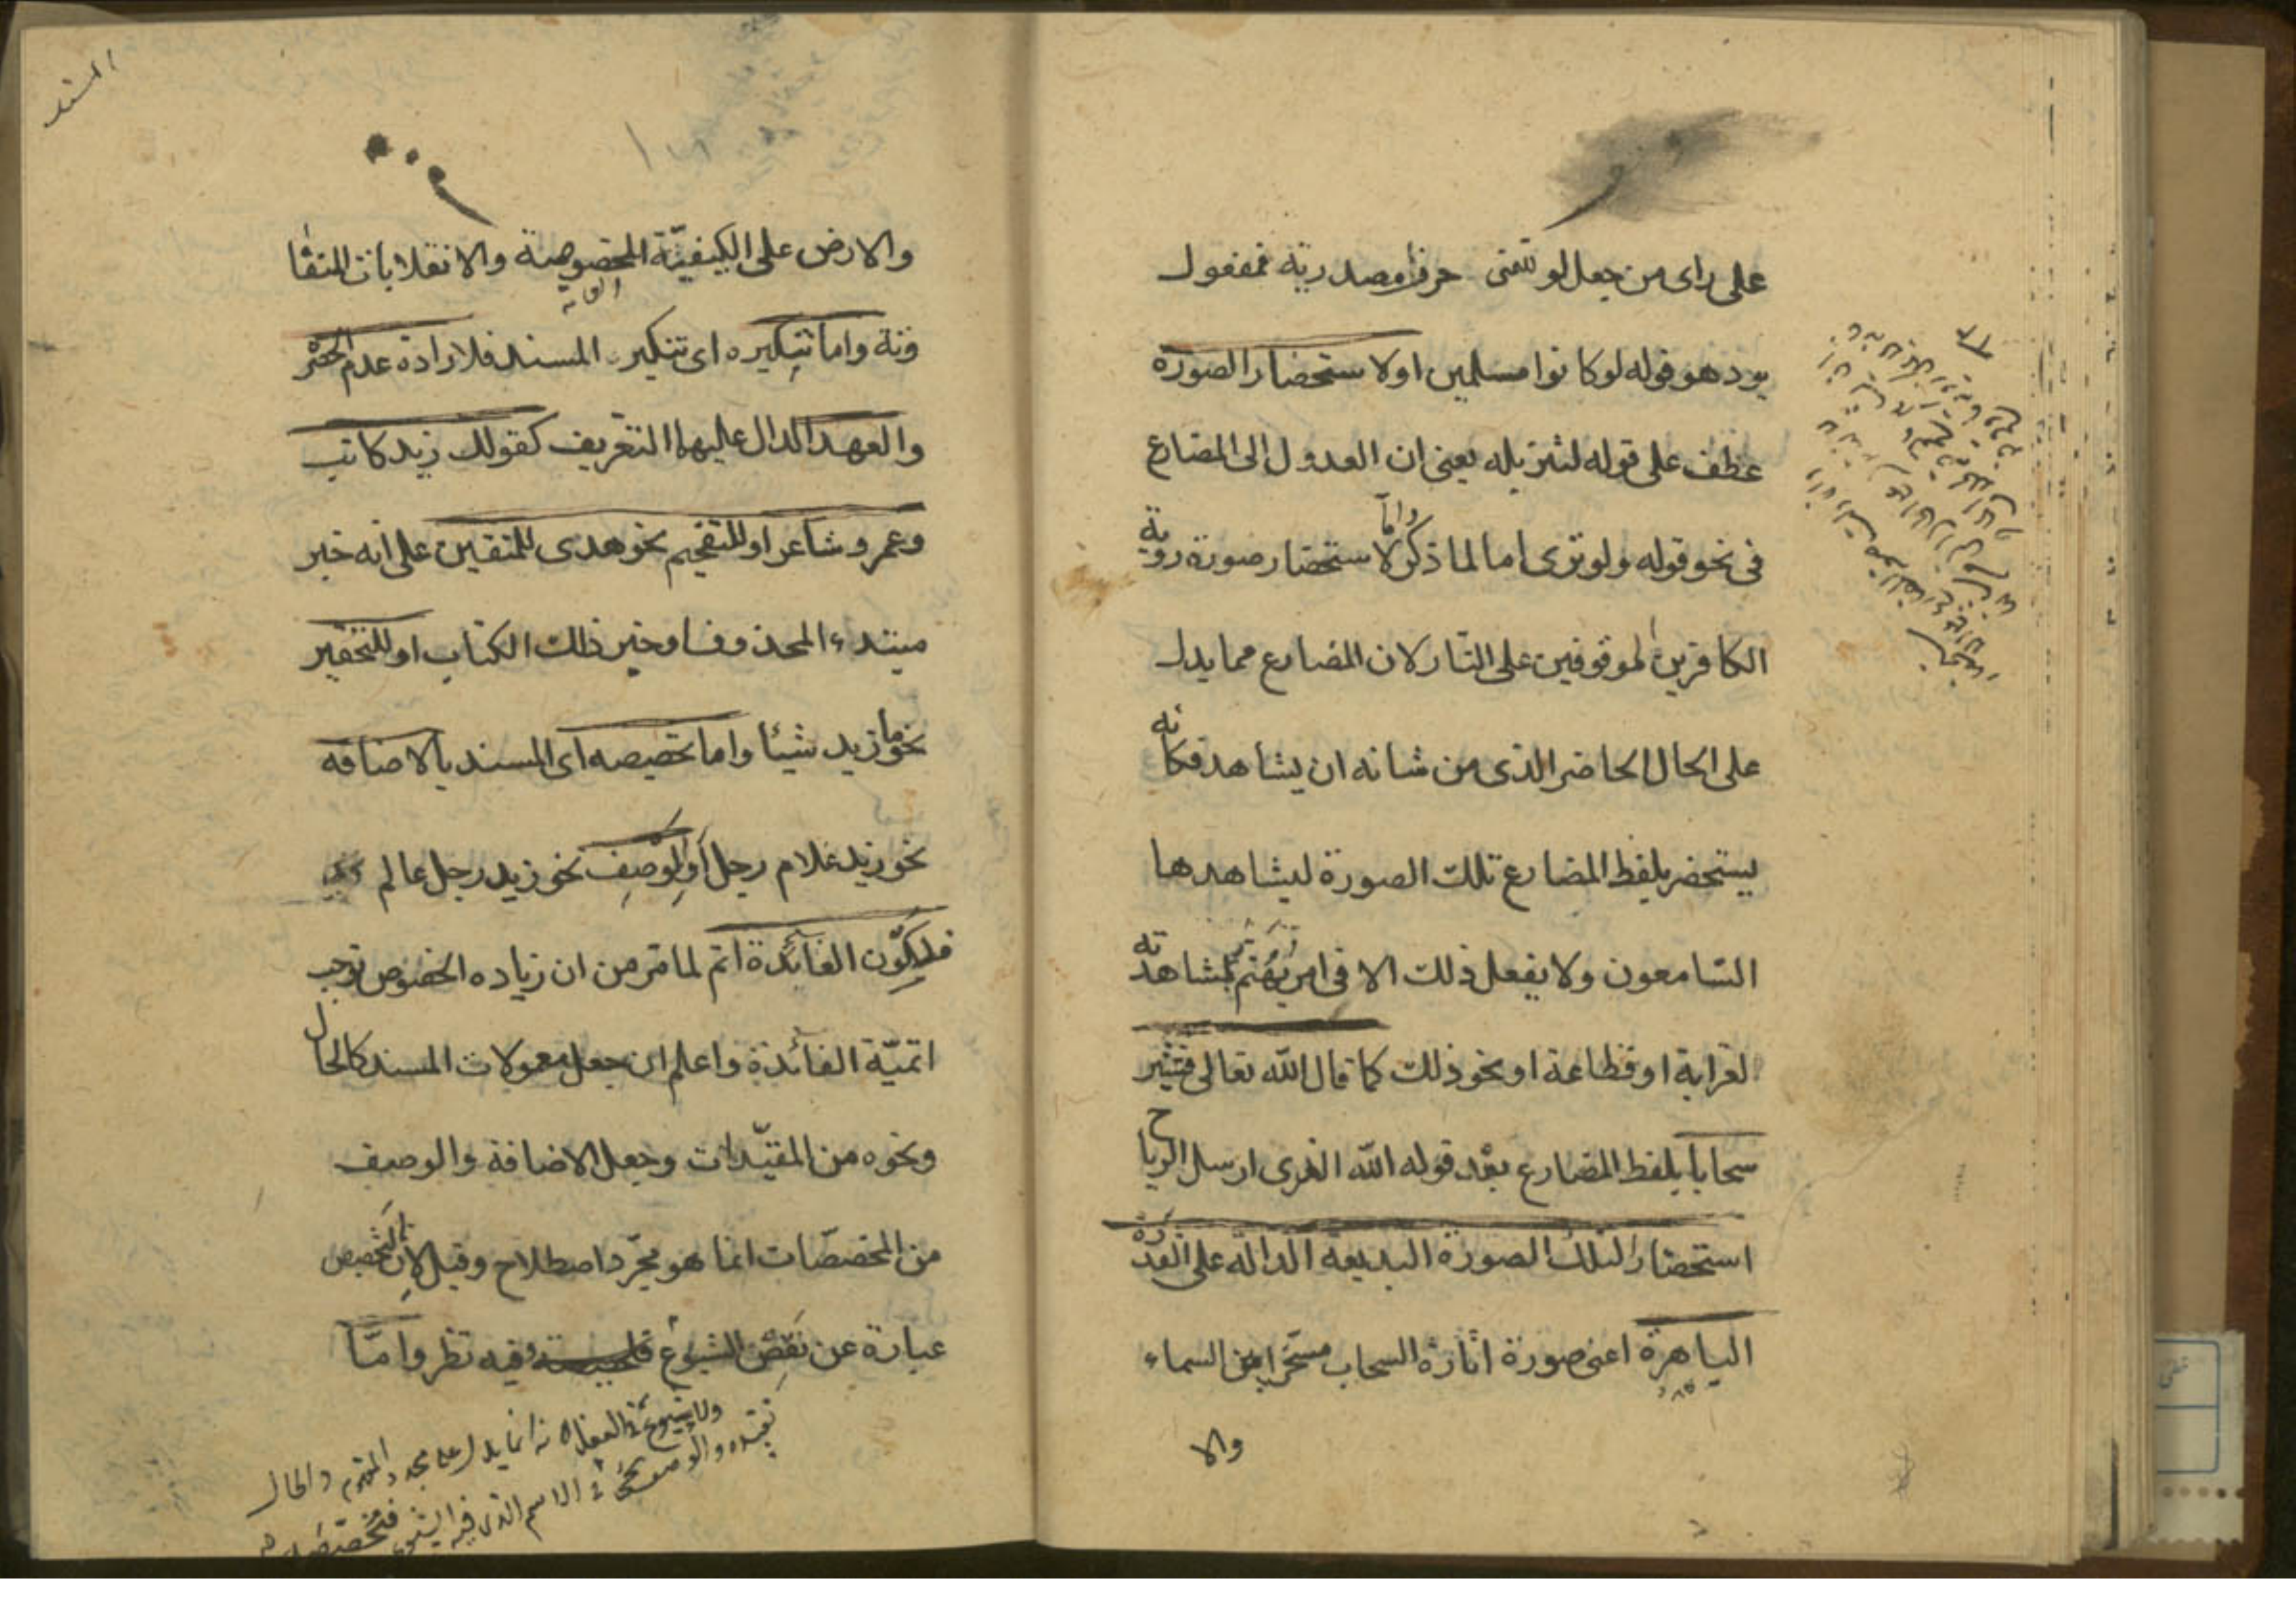 على راى من جعل لو للتمنى حرفا مصدرية فمفعول
يود هو قوله لو كانوا مسلمين او لاستحضار الصورة
عطف على قوله لتنزيله يعنى ان العدول الى المضارع
فى نحو قوله ولو ترى اما لما ذكر واما لاستحضار صورة روية
الكافرين الموقوفين على النار لان المضارع مما يدل
على الحال الحاضر الذى من شانه ان يشاهد فكانه
يستحضر بلفظ المضارع تلك الصورة ليشاهدها
السّامعون ولا يفعل ذلك الا فى امر يهتم بمشاهدته
لغرابة او فظاعة او نحو ذلك كما قال الله تعالى فتثير
سحابا بلفظ المضارع بعد قوله الله الذى ارسل الرياح
استحضارا لتلك الصورة البديعة الدالة على القدرة
الباهرة اعنى صورة اثارة السحاب مسخرا بين السماء
والا
المسند
والارض على الكيفيّة المخصوصة والانقلابات المتفا
وتة واما تنكيره اى تنكير المسند فلارادة عدم الحصر
والعهد الدال عليهما التعريف كقولك زيد كاتب
وعمرو شاعر او للتفخيم نحو هدى للمتقين على انه خبر
مبتدء المحذوف او خبر ذلك الكتاب او للتحقير
نحو ما زيد شيئا واما تخصيصه اى المسند بالاضافه
نحو زيد غلام رجل او الوصف نحو زيد رجل عالم
فلكون الفائدة اتم لما مر من ان زياده الخصوص توجب
اتميّة الفائدة واعلم ان جعل معمولات المسند كالحال
ونحوه من المقيّدات وجعل الاضافة والوصف
من المخصصّات انما هو مجّرد اصطلاح وقيل لان التخصيص
عبارة عن نقص الشيوع وفيه نظر وامّا
ولا شيوع فى الفعل لانه انما يدل على مجرد المفهوم والحال
تقيده والوصف يجئ فى الاسم الذى فيه الشيوع فتخصصه